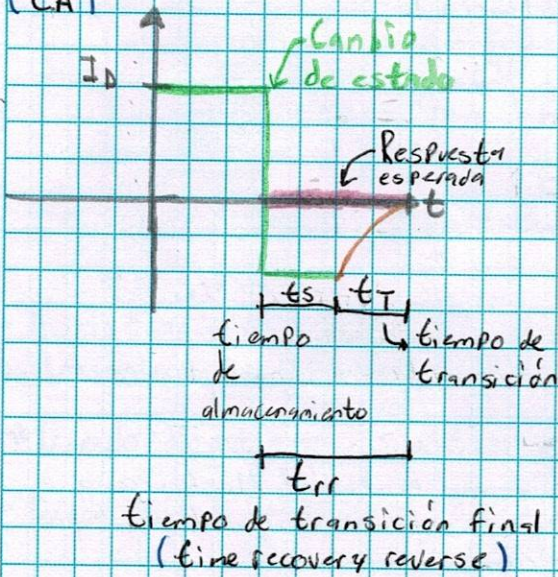 (CA)
Cambio
de estado
I_D
Respuesta
esperada
t
ts
t_T
tiempo
de
almacenamiento
tiempo de
transición
trr
tiempo de transición final
(time recovery reverse)